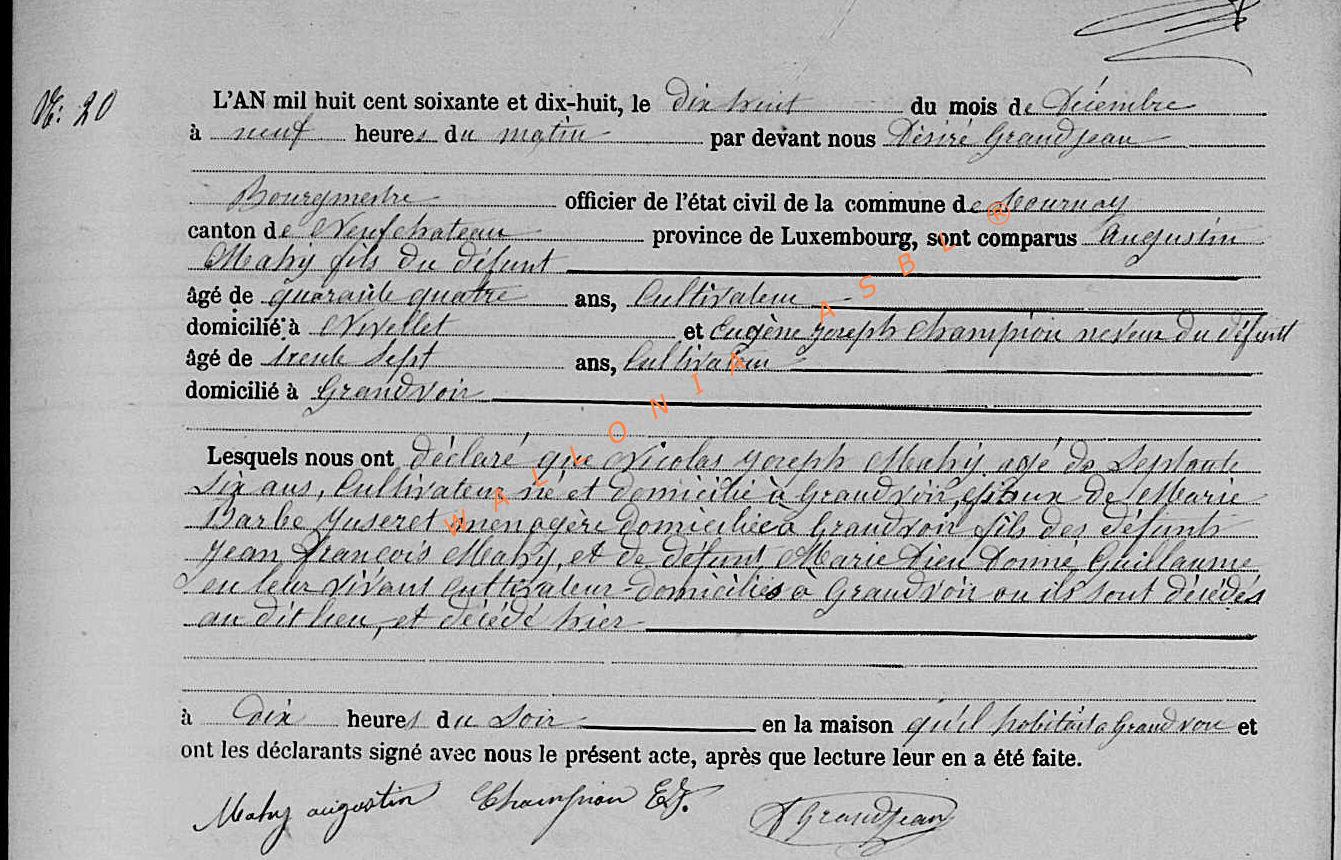 N: 20
L'AN mil huit cent soixante et dix-huit, le dix huit du mois de Décembre
à neuf heures du matin par devant nous Désiré Grandjean
Bourgmestre officier de l'état civil de la commune de Tournay
canton de Neufchateau province de Luxembourg, sont comparus Augustin
Mahy fils du défunt
âgé de quarante quatre ans, Cultivateur
domicilié à et Eugène Joseph Champion neveu du défunt
âgé de trente sept ans, Cultivateur
domicilié à Grandvoir
Lesquels nous ont déclaré que Nicolas Joseph Mahy agé de Septante
Six ans, Cultivateur né et domicilié à Grandvoir, époux de Marie
Barbe Yuseret ménagère domiciliée à Grandvoir fils des défunts
Jean François Mahy, et de défunt Marie Dieu Donné Guillaume
en leur vivant cultivateur domiciliés à Grandvoir ou ils sont décédés
au dit lieu, et décédé hier
à dix heures du soir en la maison qu'il habitait à Grandvoir et
ont les déclarants signé avec nous le présent acte, après que lecture leur en a été faite.
Mahy augustin Champion EJ. D Grandjean
WALLONIA ASBL ®